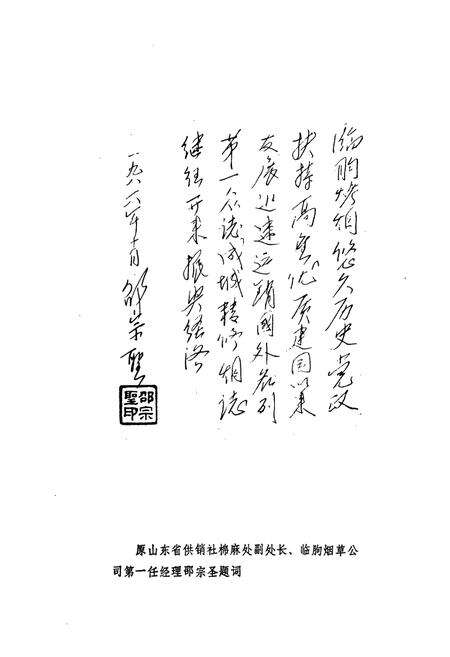 临朐烤烟悠久历史党政
扶持高产优质建国以来
发展迅速运销國外名列
第一众誌成城精修烟誌
继往开来振兴经济
一九八六年十月 邵宗聖
邵宗聖印
原山东省供销社棉麻处副处长、临朐烟草公
司第一任经理邵宗圣题词